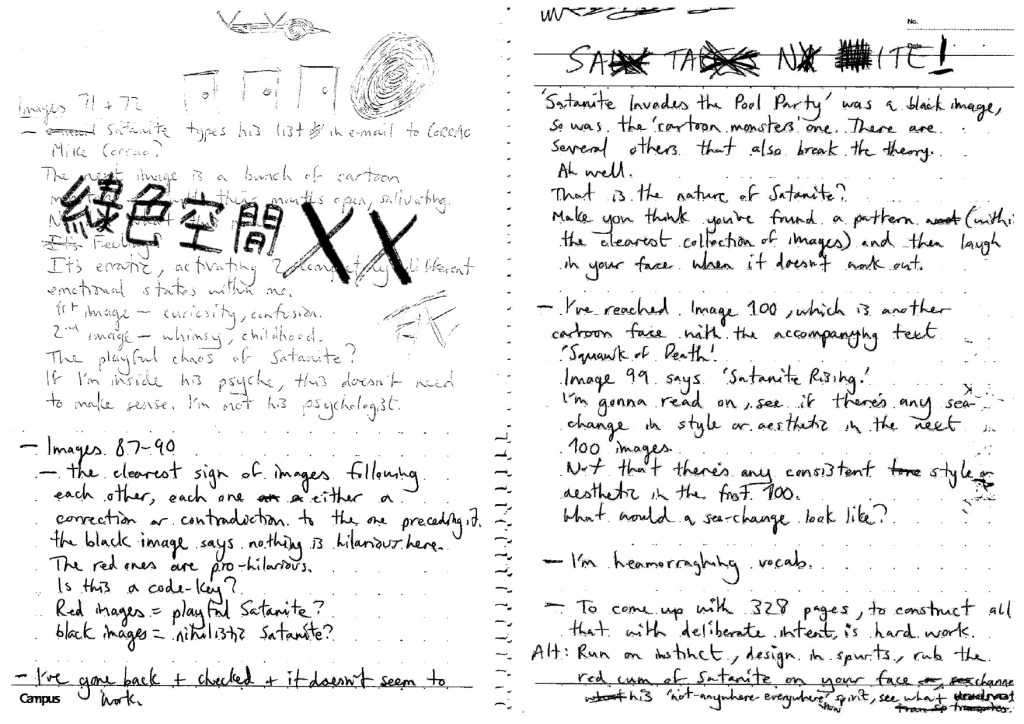 Images 71 + 72
- Satanite types his list in e-mail to CORRAO
Mike Corrao?
The next image is a bunch of cartoon
their mouths open, salivating.
綠色空間 XX
Feeling?
It's erratic, activating 2 completely different
emotional states within me.
1st image - curiosity, confusion.
2nd image - whimsy, childhood.
The playful chaos of Satanite?
If I'm inside his psyche, this doesn't need
to make sense. I'm not his psychologist.
- Images 87-90
- the clearest sign of images following
each other, each one either a
correction or contradiction to the one preceding it.
the black image says nothing is hilarious here.
The red ones are pro-hilarious.
Is this a code-key?
Red images = playful Satanite?
black images = nihilistic Satanite?
- I've gone back + checked + it doesn't seem to
work.
Campus
No.
Date
SA TA N ITE!
'Satanite Invades the Pool Party' was a black image,
so was the 'cartoon monsters' one. There are
several others that also break the theory.
Ah well.
That is the nature of Satanite?
Make you think you've found a pattern (withi
the clearest collection of images) and then laugh
in your face when it doesn't work out.
- I've reached Image 100, which is another
cartoon face with the accompanying text
'Squawk of Death'.
Image 99 says 'Satanite Rising.'
I'm gonna read on, see if there's any sea-
change in style or aesthetic in the next
100 images.
Not that there's any consistent style or
aesthetic in the first 100.
What would a sea-change look like?
- I'm heamorraghing vocab.
- To come up with 328 pages, to construct all
that with deliberate intent, is hard work.
Alt: Run on instinct, design in spurts, rub the
red cum of Satanite on your face change
his 'not-anywhere-everywhere' spirit, see what